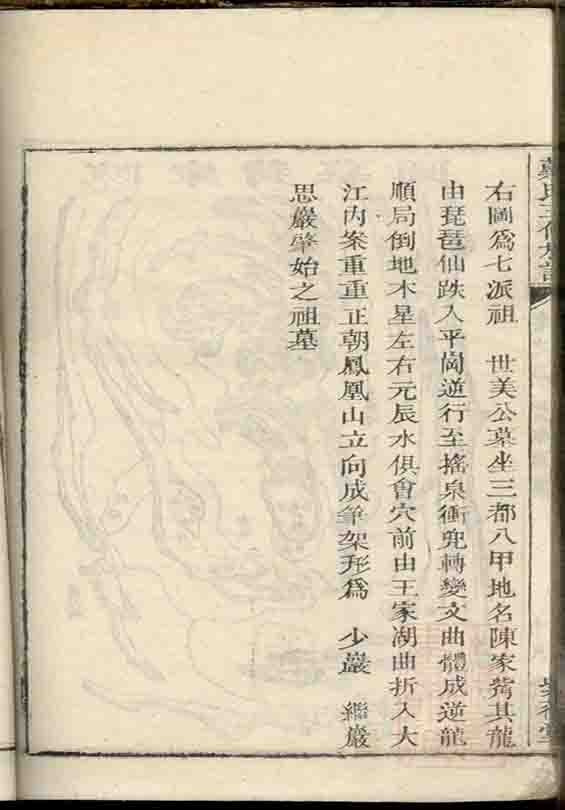 右圖爲七派祖　世美公墓坐三都八甲地名陳家䓨其龍
由琵琶仙跌入平崗逆行至搖泉衝兜轉變文曲體成逆龍
順局倒地木星左右元辰水俱會穴前由王家湖曲折入大
江內案重重正朝鳳凰山立向成筆架形爲　少巖　繼巖
思巖肇始之祖墓